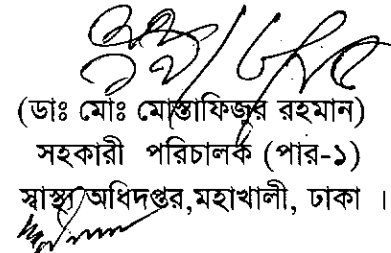 (ডাঃ মোঃ মোস্তাফিজুর রহমান)
সহকারী পরিচালক (পার-১)
স্বাস্থ্য অধিদপ্তর,মহাখালী, ঢাকা ।